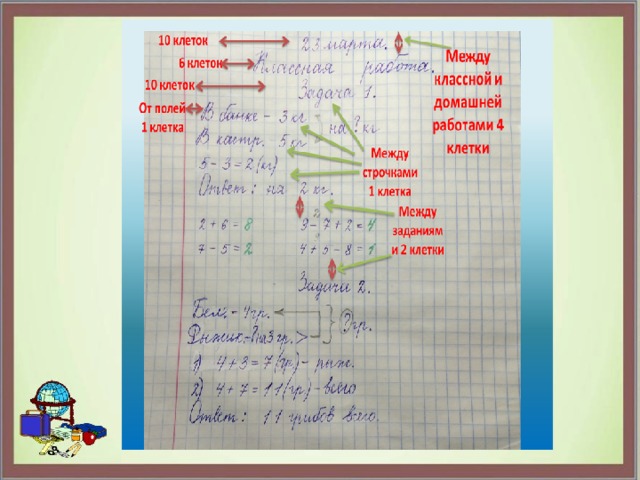 10 клеток
23 марта.
6 клеток
Классная работа.
10 клеток
Задача 1.
От полей
1 клетка
Между
классной и
домашней
работами 4
клетки
В банке - 3 кг
В кастр. 5 кг
на ? кг
5 - 3 = 2 (кг)
Ответ: на 2 кг.
Между
строчками
1 клетка
Между
заданиям
и 2 клетки
2 + 6 = 8
9 - 7 + 2 = 4
7 - 5 = 2
4 + 5 - 8 = 1
Задача 2.
Бел. - 4 гр.
Рыжик. - ? на 3 гр. >
? гр.
1) 4 + 3 = 7 (гр.) - рыж.
2) 4 + 7 = 11 (гр) - всего
Ответ: 11 грибов всего.